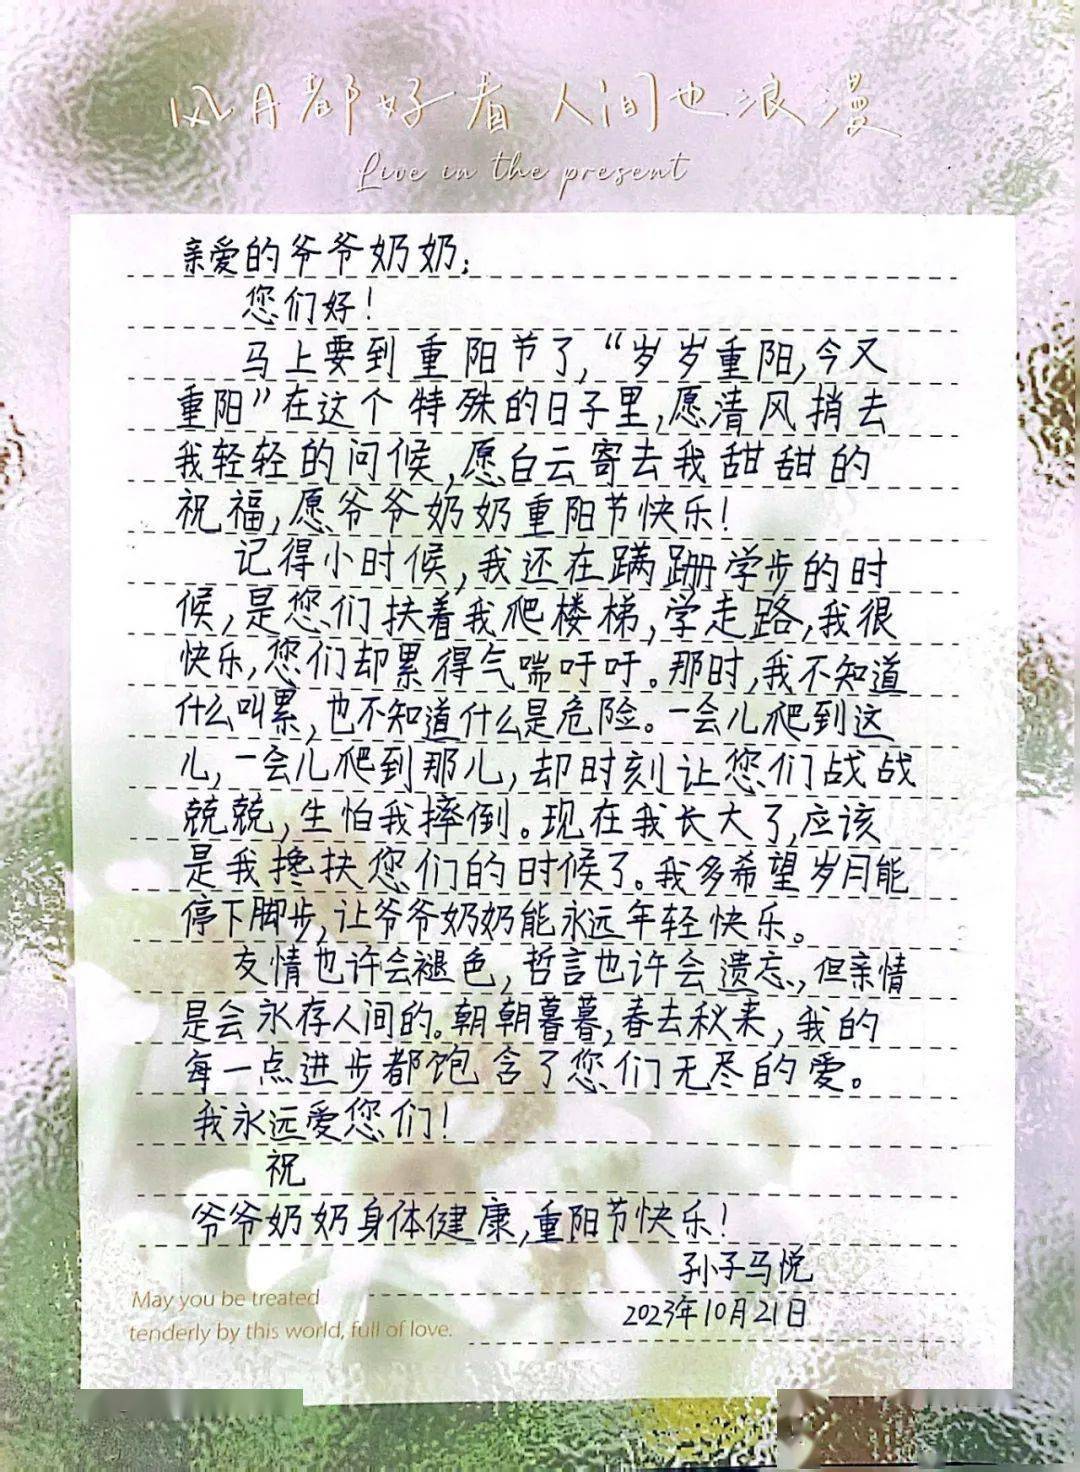 风月都好看 人间也浪漫
Live in the present
亲爱的爷爷奶奶：
您们好！
马上要到重阳节了，“岁岁重阳，今又
重阳”在这个特殊的日子里，愿清风捎去
我轻轻的问候，愿白云寄去我甜甜的
祝福，愿爷爷奶奶重阳节快乐！
记得小时候，我还在蹒跚学步的时
候，是您们扶着我爬楼梯，学走路，我很
快乐，您们却累得气喘吁吁。那时，我不知道
什么叫累，也不知道什么是危险。一会儿爬到这
儿，一会儿爬到那儿，却时刻让您们战战
兢兢，生怕我摔倒。现在我长大了，应该
是我搀扶您们的时候了。我多希望岁月能
停下脚步，让爷爷奶奶能永远年轻快乐。
友情也许会褪色，哲言也许会遗忘，但亲情
是会永存人间的。朝朝暮暮，春去秋来，我的
每一点进步都饱含了您们无尽的爱。
我永远爱您们！
祝
爷爷奶奶身体健康，重阳节快乐！
孙子马悦
2023年10月21日
May you be treated
tenderly by this world, full of love.